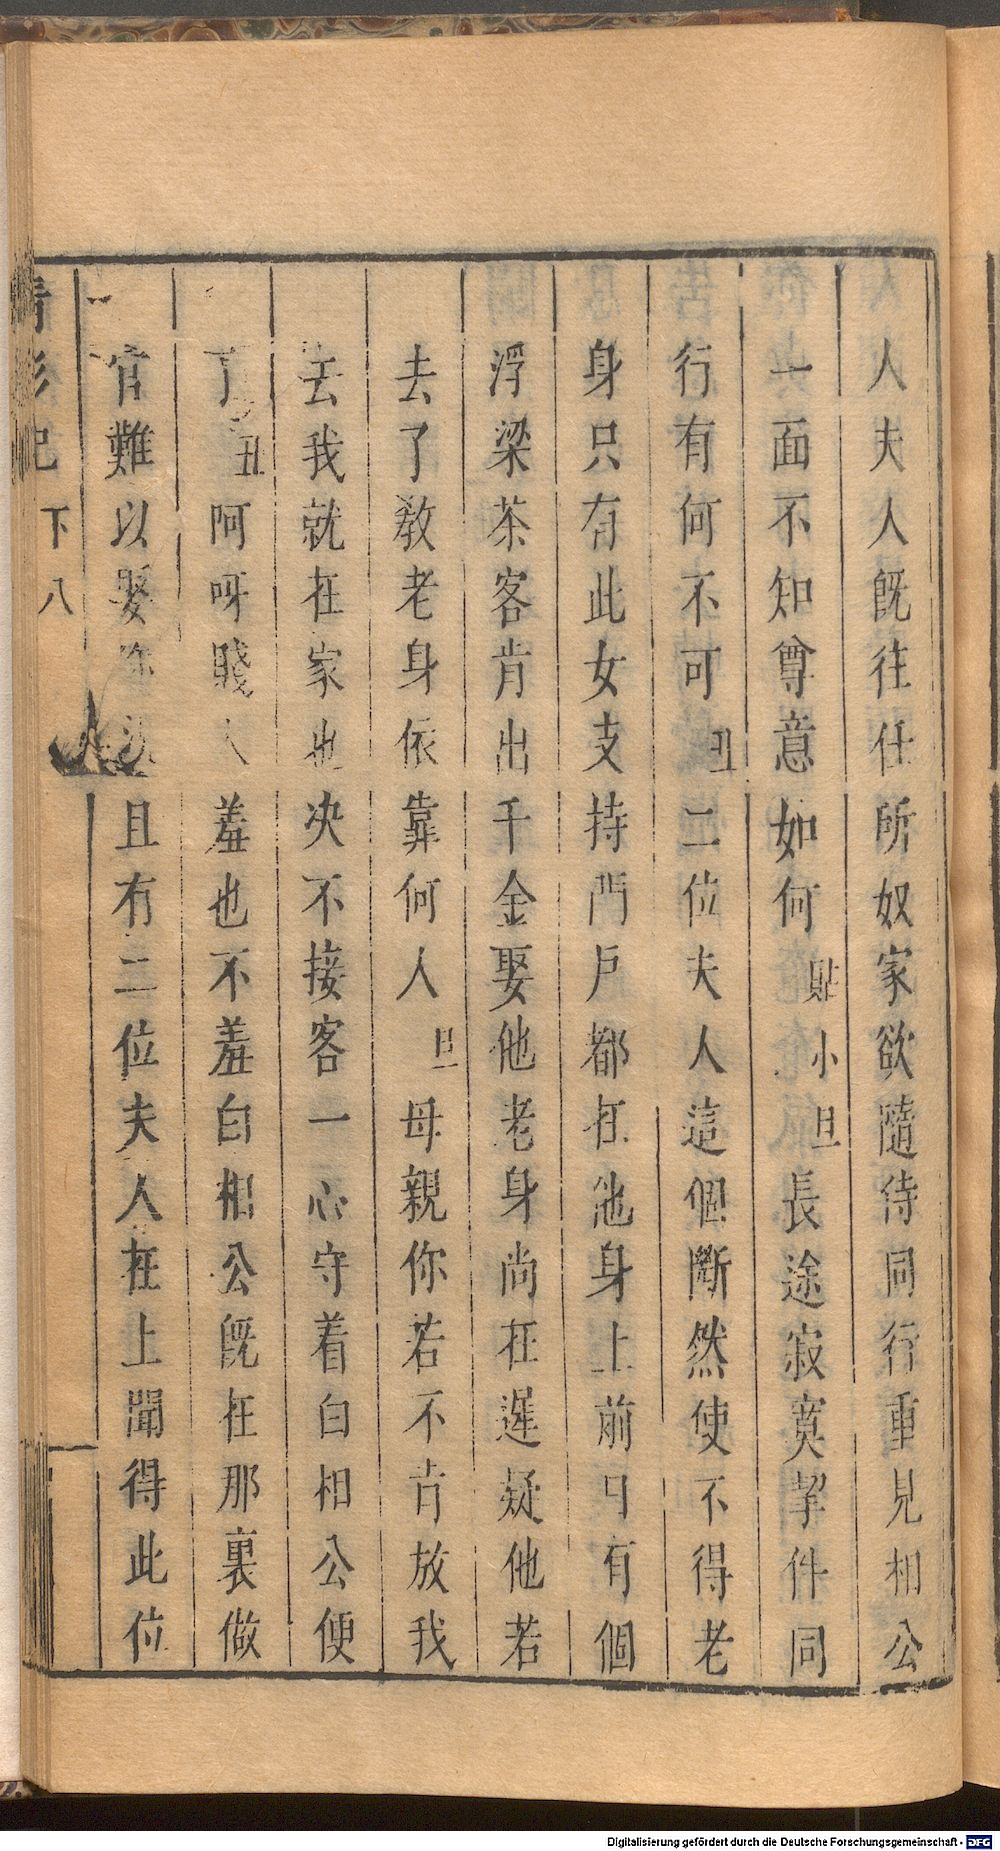 人夫人旣往任所奴家欲隨侍同行重見相公
一面不知尊意如何貼小旦長途寂寞挈伴同
行有何不可丑二位夫人這個斷然使不得老
身只有此女支持門戶都在他身上前日有個
浮梁茶客肯出千金娶他老身尚在遲疑他若
去了敎老身依靠何人旦母親你若不肯放我
去我就在家也决不接客一心守着白相公便
了丑阿呀賤人羞也不羞白相公旣在那裏做
官難以娶你況且有二位夫人在上聞得此位
下 八
Digitalisierung gefördert durch die Deutsche Forschungsgemeinschaft - DFG